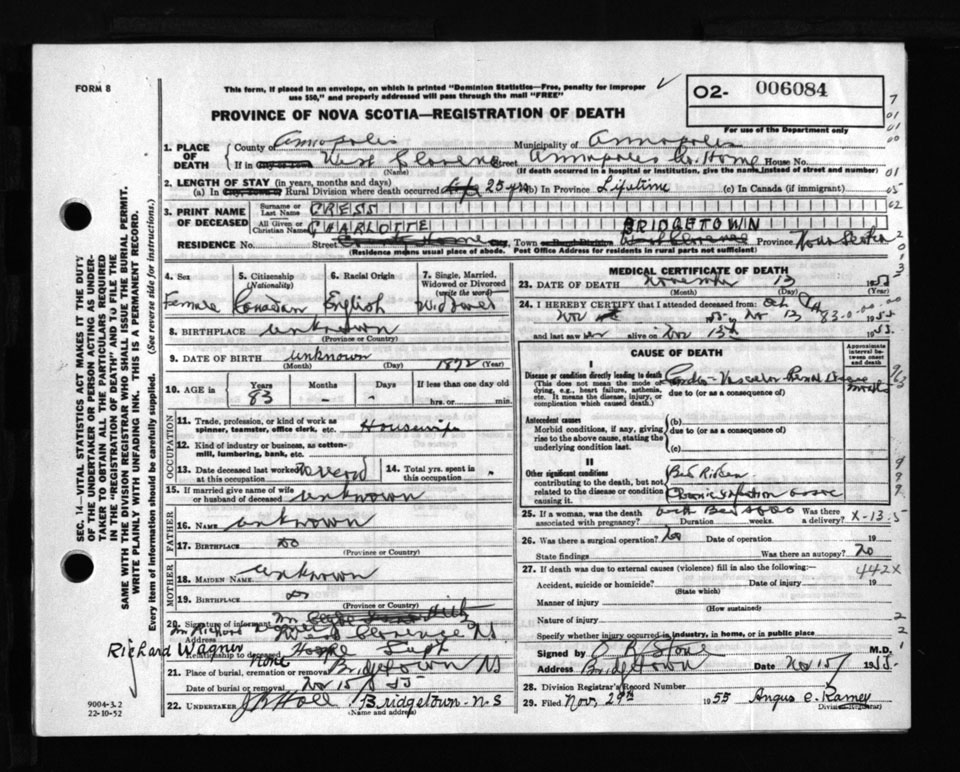 FORM 8
This form, if placed in an envelope, on which is printed "Dominion Statistics—Free, penalty for improper
use $50," and properly addressed will pass through the mail "FREE"
O2- 006084
For use of the Department only
PROVINCE OF NOVA SCOTIA—REGISTRATION OF DEATH
1. PLACE OF DEATH
County of Annapolis Municipality of Annapolis
If in West Clarence Street Annapolis Co. Home House No.
(Name) (If death occurred in a hospital or institution, give the name instead of street and number)
2. LENGTH OF STAY (in years, months and days)
(a) In Rural Division where death occurred 25 yrs (b) In Province Lifetime (c) In Canada (if immigrant)
3. PRINT NAME OF DECEASED
Surname or Last Name CRESS
All Given or Christian Names CHARLOTTE
BRIDGETOWN
RESIDENCE No. Street Town Province Nova Scotia
(Residence means usual place of abode. Post Office Address for residents in rural parts not sufficient)
4. Sex Female
5. Citizenship (Nationality) Canadian
6. Racial Origin English
7. Single, Married, Widowed or Divorced (write the word) Widower
8. BIRTHPLACE unknown
(Province or Country)
9. DATE OF BIRTH unknown 1872 (Year)
(Month) (Day)
10. AGE in Years 83 Months - Days - If less than one day old hrs. or min.
OCCUPATION
11. Trade, profession, or kind of work as spinner, teamster, office clerk, etc. Housewife
12. Kind of industry or business, as cotton-mill, lumbering, bank, etc.
13. Date deceased last worked at this occupation
14. Total yrs. spent in this occupation
15. If married give name of wife or husband of deceased unknown
FATHER
16. NAME unknown
17. BIRTHPLACE do
(Province or Country)
MOTHER
18. MAIDEN NAME unknown
19. BIRTHPLACE do
(Province or Country)
20. Signature of informant
Mr Richard
Address West Clarence N.S.
Richard Wagner
Relationship to deceased Supt
None
21. Place of burial, cremation or removal Bridgetown NS
Date of burial or removal Nov 15/55
22. UNDERTAKER Bridgetown-N.S
(Name and address)
MEDICAL CERTIFICATE OF DEATH
23. DATE OF DEATH November 13 1955
(Month) (Day)
24. I HEREBY CERTIFY that I attended deceased from
Nov 13 1955
and last saw her alive on Nov 13th 1955.
CAUSE OF DEATH
Approximate interval between onset and death
I
Disease or condition directly leading to death
(This does not mean the mode of dying, e.g., heart failure, asthenia, etc. It means the disease, injury, or complication which caused death.)
Cardio-Vascular-Renal Disease
due to (or as a consequence of)
Antecedent causes
Morbid conditions, if any, giving rise to the above cause, stating the underlying condition last.
(b)
due to (or as a consequence of)
(c)
II
Other significant conditions
contributing to the death, but not related to the disease or condition causing it.
Bed Ridden
25. If a woman, was the death associated with pregnancy? Duration weeks. Was there a delivery? X-13-5
26. Was there a surgical operation? No Date of operation 19
State findings Was there an autopsy? No
27. If death was due to external causes (violence) fill in also the following:— 442X
Accident, suicide or homicide? Date of injury 19
(State which)
Manner of injury
(How sustained)
Nature of injury
Specify whether injury occurred in industry, in home, or in public place
Signed by M.D.
Address Bridgetown Date Nov 15/ 1955
28. Division Registrar's Record Number
29. Filed Nov. 29th 1955 Angus C. Ramey
Division Registrar
SEC. 14—VITAL STATISTICS ACT MAKES IT THE DUTY
OF THE UNDERTAKER OR PERSON ACTING AS UNDER-
TAKER TO OBTAIN ALL THE PARTICULARS REQUIRED
IN THE "REGISTRATION OF DEATH" AND TO FILE THE
SAME WITH THE DIVISION REGISTRAR WHO SHALL ISSUE THE BURIAL PERMIT.
WRITE PLAINLY WITH UNFADING INK. THIS IS A PERMANENT RECORD.
Every item of information should be carefully supplied. (See reverse side for instructions.)
9004-3.2
22-10-52